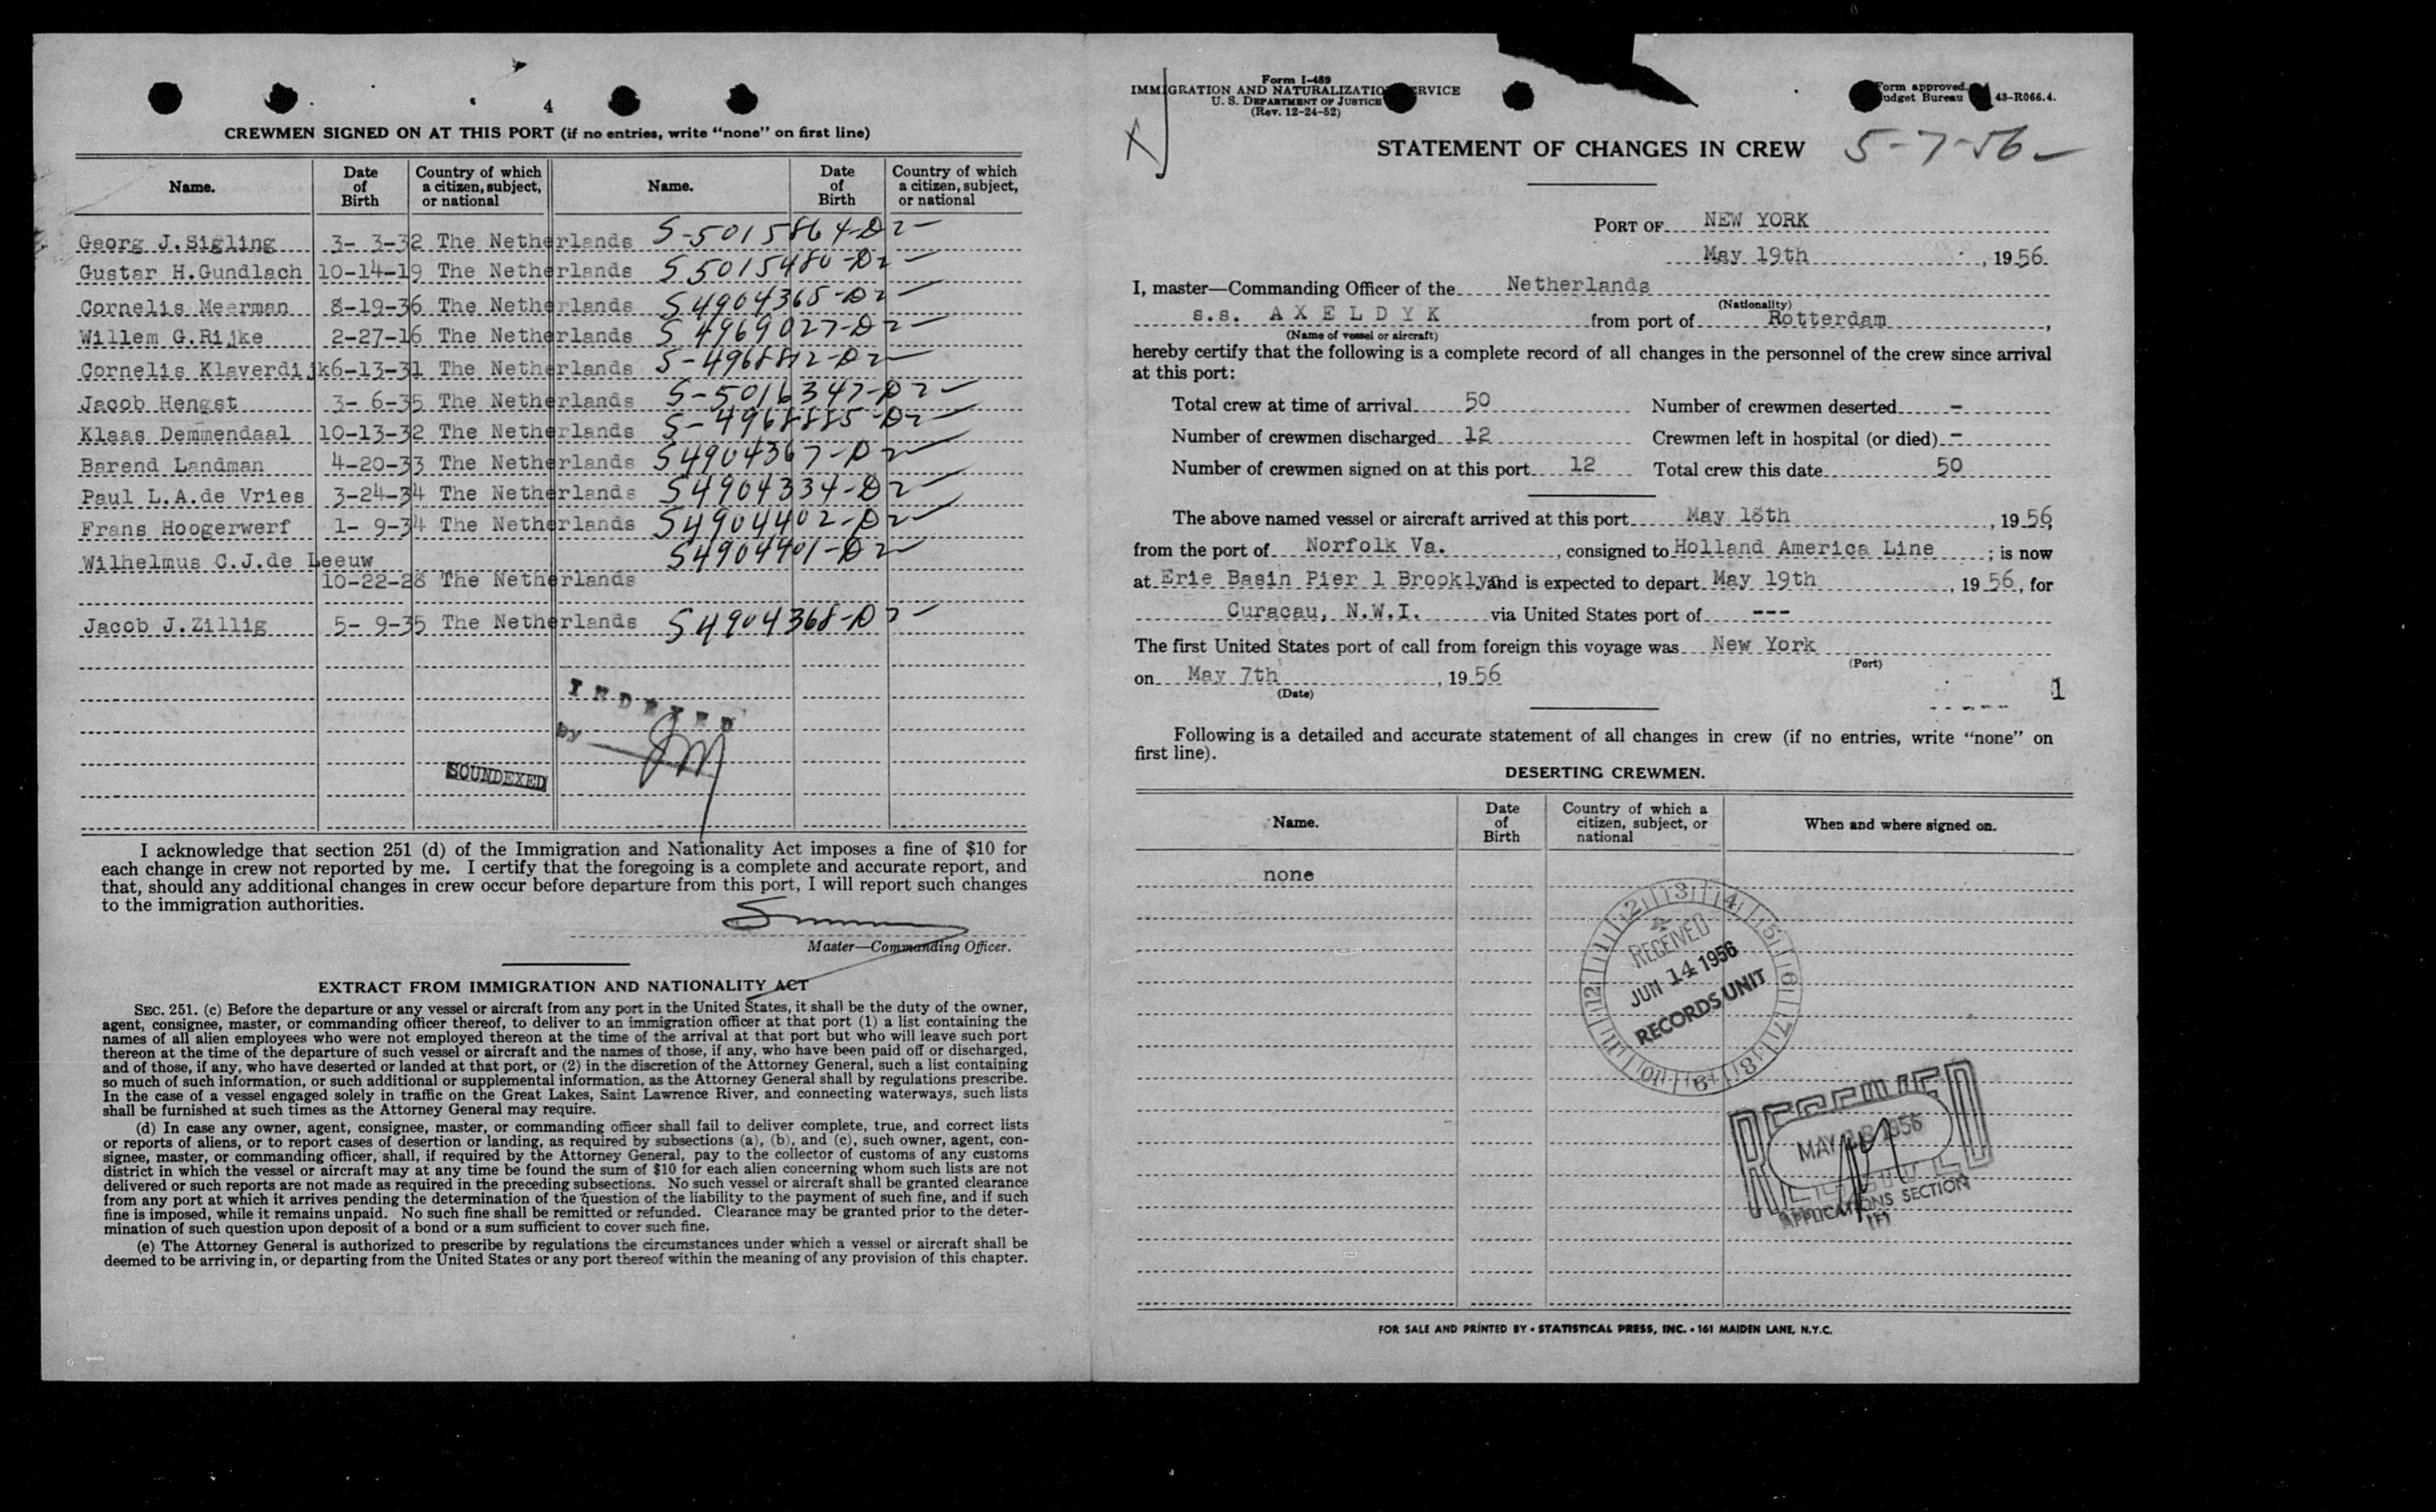 4
CREWMEN SIGNED ON AT THIS PORT (if no entries, write "none" on first line)
Name. Date of Birth Country of which a citizen, subject, or national Name. Date of Birth Country of which a citizen, subject, or national
Georg J.Sigling 3- 3-32 The Netherlands S-5015864-D2
Gustar H.Gundlach 10-14-19 The Netherlands S5015480-D2
Cornelis Meerman 8-19-36 The Netherlands S4904365-D2
Willem G.Rijke 2-27-16 The Netherlands S4969027-D2
Cornelis Klaverdijk 6-13-31 The Netherlands S-4968812-D2
Jacob Hengst 3- 6-35 The Netherlands S-5016347-D2
Klaas Demmendaal 10-13-32 The Netherlands S-4968885-D2
Barend Landman 4-20-33 The Netherlands S4904367-D2
Paul L.A.de Vries 3-24-34 The Netherlands S4904334-D2
Frans Hoogerwerf 1- 9-34 The Netherlands S4904402-D2
Wilhelmus C.J.de Leeuw S4904401-D2
10-22-28 The Netherlands
Jacob J.Zillig 5- 9-35 The Netherlands S4904368-D2
INDEXED
by
SOUNDEXED
I acknowledge that section 251 (d) of the Immigration and Nationality Act imposes a fine of $10 for
each change in crew not reported by me. I certify that the foregoing is a complete and accurate report, and
that, should any additional changes in crew occur before departure from this port, I will report such changes
to the immigration authorities.
Master—Commanding Officer.
EXTRACT FROM IMMIGRATION AND NATIONALITY ACT
SEC. 251. (c) Before the departure or any vessel or aircraft from any port in the United States, it shall be the duty of the owner,
agent, consignee, master, or commanding officer thereof, to deliver to an immigration officer at that port (1) a list containing the
names of all alien employees who were not employed thereon at the time of the arrival at that port but who will leave such port
thereon at the time of the departure of such vessel or aircraft and the names of those, if any, who have been paid off or discharged,
and of those, if any, who have deserted or landed at that port, or (2) in the discretion of the Attorney General, such a list containing
so much of such information, or such additional or supplemental information, as the Attorney General shall by regulations prescribe.
In the case of a vessel engaged solely in traffic on the Great Lakes, Saint Lawrence River, and connecting waterways, such lists
shall be furnished at such times as the Attorney General may require.
(d) In case any owner, agent, consignee, master, or commanding officer shall fail to deliver complete, true, and correct lists
or reports of aliens, or to report cases of desertion or landing, as required by subsections (a), (b), and (c), such owner, agent, con-
signee, master, or commanding officer, shall, if required by the Attorney General, pay to the collector of customs of any customs
district in which the vessel or aircraft may at any time be found the sum of $10 for each alien concerning whom such lists are not
delivered or such reports are not made as required in the preceding subsections. No such vessel or aircraft shall be granted clearance
from any port at which it arrives pending the determination of the question of the liability to the payment of such fine, and if such
fine is imposed, while it remains unpaid. No such fine shall be remitted or refunded. Clearance may be granted prior to the deter-
mination of such question upon deposit of a bond or a sum sufficient to cover such fine.
(e) The Attorney General is authorized to prescribe by regulations the circumstances under which a vessel or aircraft shall be
deemed to be arriving in, or departing from the United States or any port thereof within the meaning of any provision of this chapter.
Form I-489
IMMIGRATION AND NATURALIZATION SERVICE
U. S. DEPARTMENT OF JUSTICE
(Rev. 12-24-52)
Form approved.
Budget Bureau 43-R066.4.
X
STATEMENT OF CHANGES IN CREW 5-7-56
PORT OF NEW YORK
May 19th, 1956
I, master—Commanding Officer of the Netherlands
(Nationality)
s.s. A X E L D Y K from port of Rotterdam,
(Name of vessel or aircraft)
hereby certify that the following is a complete record of all changes in the personnel of the crew since arrival
at this port:
Total crew at time of arrival 50 Number of crewmen deserted -
Number of crewmen discharged 12 Crewmen left in hospital (or died) -
Number of crewmen signed on at this port 12 Total crew this date 50
The above named vessel or aircraft arrived at this port May 18th, 1956,
from the port of Norfolk Va., consigned to Holland America Line; is now
at Erie Basin Pier 1 Brooklyn and is expected to depart May 19th, 1956, for
Curacau, N.W.I. via United States port of ---
The first United States port of call from foreign this voyage was New York
(Port)
on May 7th, 1956
(Date)
1
Following is a detailed and accurate statement of all changes in crew (if no entries, write "none" on
first line).
DESERTING CREWMEN.
Name. Date of Birth Country of which a citizen, subject, or national When and where signed on.
none
1 2 3 4 5 6 7 8 9 10 11 12
RECEIVED
JUN 14 1956
RECORDS UNIT
RECEIVED
MAY 1956
APPLICATIONS SECTION
FOR SALE AND PRINTED BY • STATISTICAL PRESS, INC. • 161 MAIDEN LANE, N.Y.C.